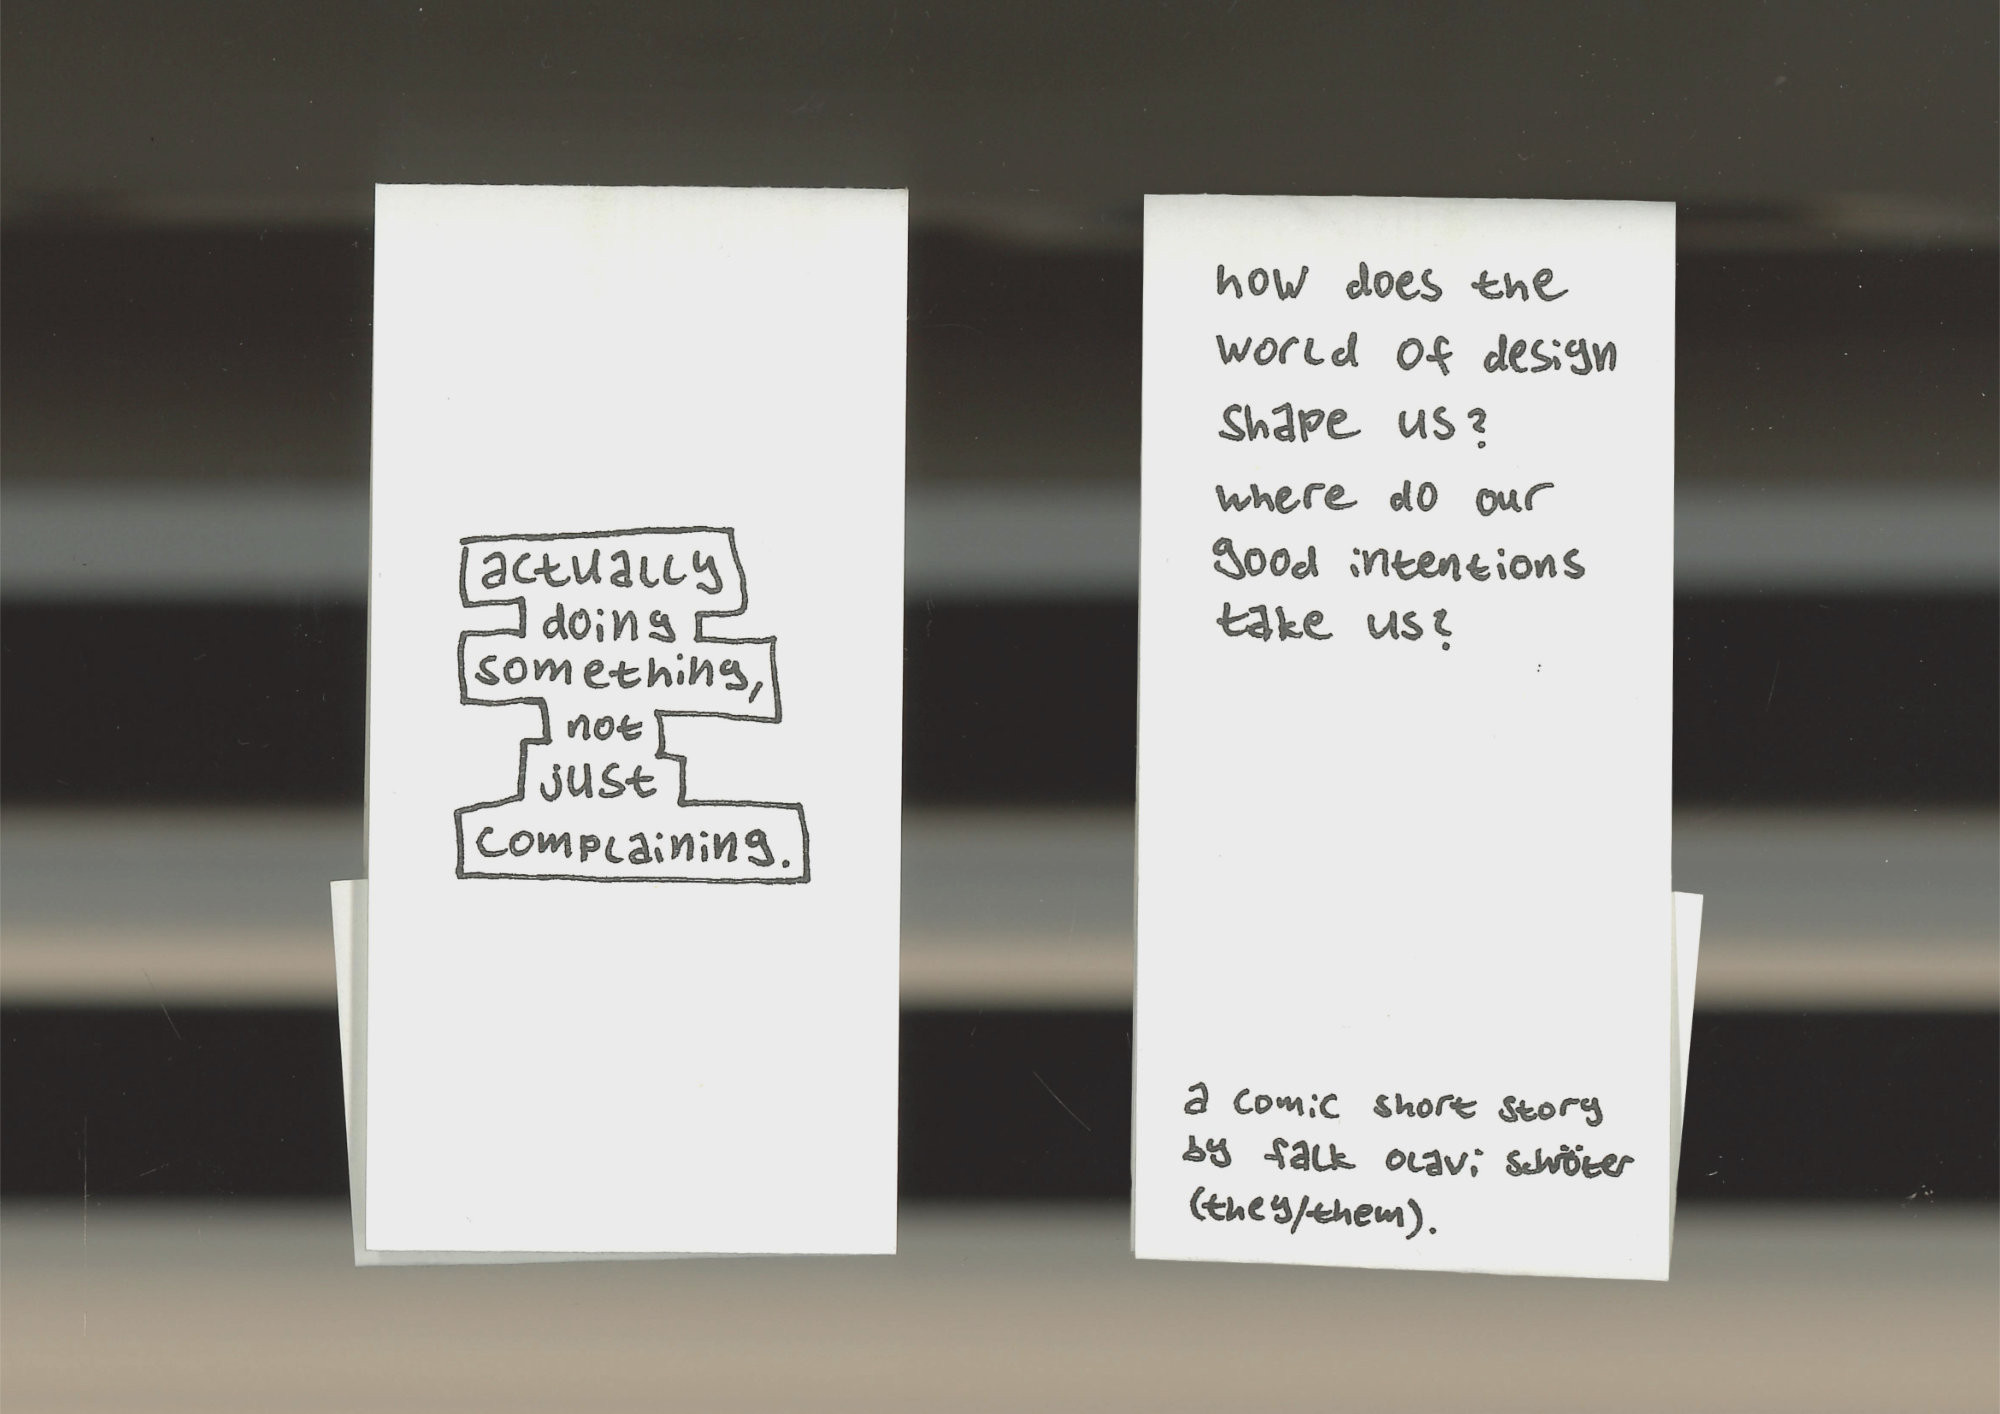 actually
doing
something,
not
just
complaining.
how does the
world of design
shape us?
where do our
good intentions
take us?
a comic short story
by falk olavi schröter
(they/them).